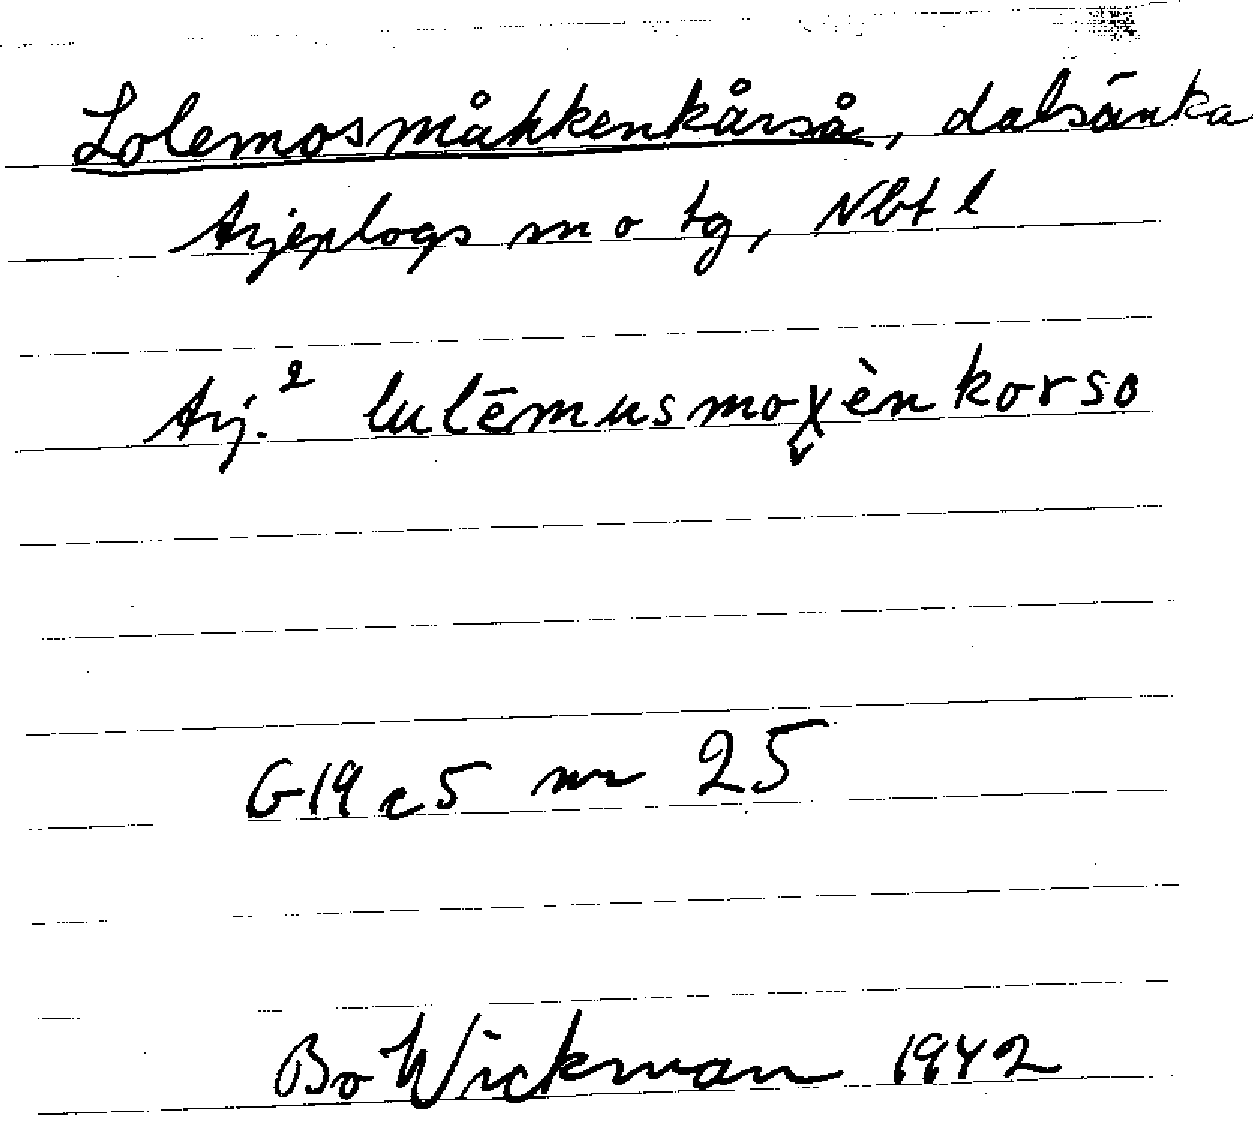 Lolemosmåhkenkårså, dalsänka
Arjeplogs sn o tg, Nbt l
Arj.² lulēmusmoχ̬ènkorso
G19c5 nr 25
Bo Wickman 1942